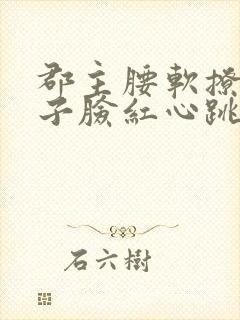 郡主腰軟撩
子臉紅心跳
石六樹